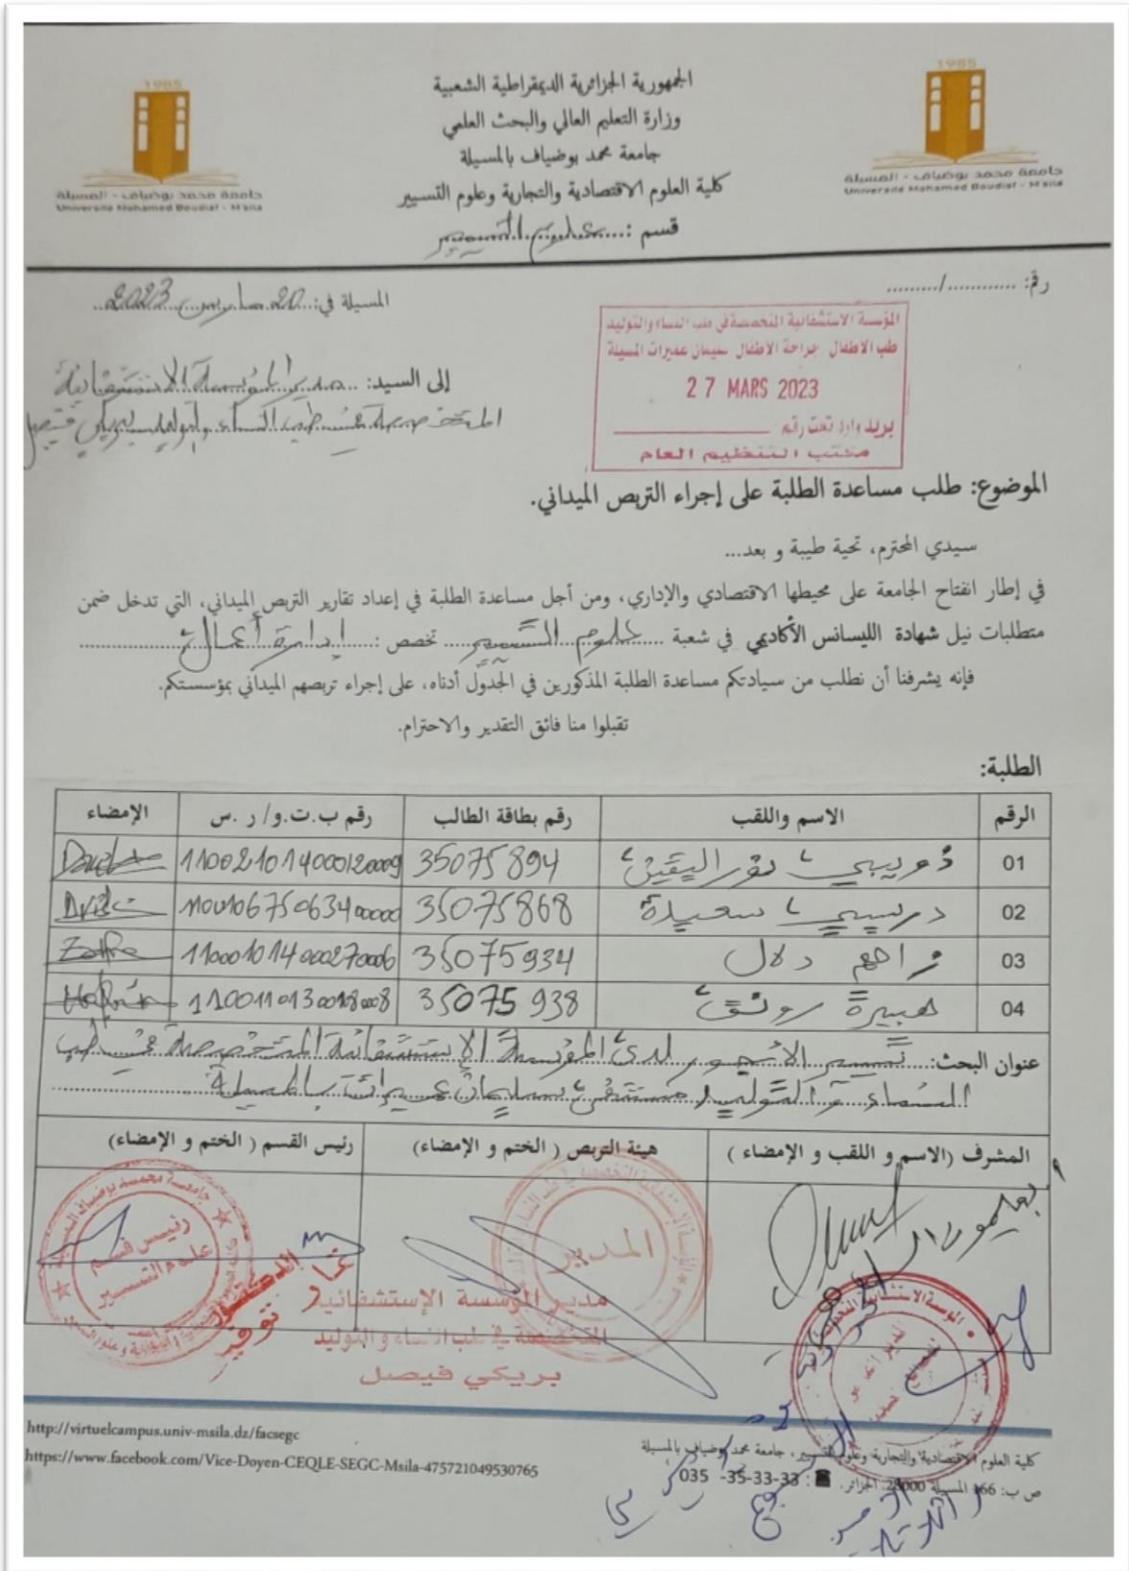 1985
جامعة محمد بوضياف - المسيلة
Université Mohamed Boudiaf - M'sila
الجمهورية الجزائرية الديمقراطية الشعبية
وزارة التعليم العالي والبحث العلمي
جامعة محمد بوضياف بالمسيلة
كلية العلوم الاقتصادية والتجارية وعلوم التسيير
قسم :....علوم التسيير
1985
جامعة محمد بوضياف - المسيلة
Université Mohamed Boudiaf - M'sila
رقم: ............/.........
المسيلة في:...20 مارس 2023...
المؤسسة الاستشفائية المتخصصة في طب النساء والتوليد
طب الاطفال جراحة الاطفال سليمان عميرات المسيلة
27 MARS 2023
بريد وارد تحت رقم
مكتب التنظيم العام
إلى السيد: ..مدير المؤسسة الاستشفائية
المتخصصة في طب النساء والتوليد بريكي فيصل
الموضوع: طلب مساعدة الطلبة على إجراء التربص الميداني.
سيدي المحترم، تحية طيبة و بعد...
في إطار انفتاح الجامعة على محيطها الاقتصادي والإداري، ومن أجل مساعدة الطلبة في إعداد تقارير التربص الميداني، التي تدخل ضمن
متطلبات نيل شهادة الليسانس الأكاديمي في شعبة ....علوم التسيير.... تخصص :....إدارة أعمال....
فإنه يشرفنا أن نطلب من سيادتكم مساعدة الطلبة المذكورين في الجدول أدناه، على إجراء تربصهم الميداني بمؤسستكم.
تقبلوا منا فائق التقدير والاحترام.
الطلبة:
الرقم الاسم واللقب رقم بطاقة الطالب رقم ب.ت.و/ ر.س الإمضاء
01 نور اليقين 35075894
02 دريسي سعيدة 35075868
03 زاهم دلال 35075934 11000101400027006
04 هبيرة رونق 35075938
عنوان البحث:...تسيير الأجور لدى المؤسسة الإستشفائية المتخصصة في طب
النساء والتوليد مستشفى سليمان عميرات بالمسيلة
المشرف (الاسم و اللقب و الإمضاء ) هيئة التربص ( الختم و الإمضاء) رئيس القسم ( الختم و الإمضاء)
رئيس قسم
علوم التسيير
الدكتور
المدير
مدير المؤسسة الإستشفائية
المتخصصة في طب النساء و التوليد
بريكي فيصل
http://virtuelcampus.univ-msila.dz/facsegc
https://www.facebook.com/Vice-Doyen-CEQLE-SEGC-Msila-475721049530765
كلية العلوم الاقتصادية والتجارية وعلوم التسيير، جامعة محمد بوضياف بالمسيلة
ص ب: 166 المسيلة 28000 الجزائر. ☎ : 33-33-35- 035